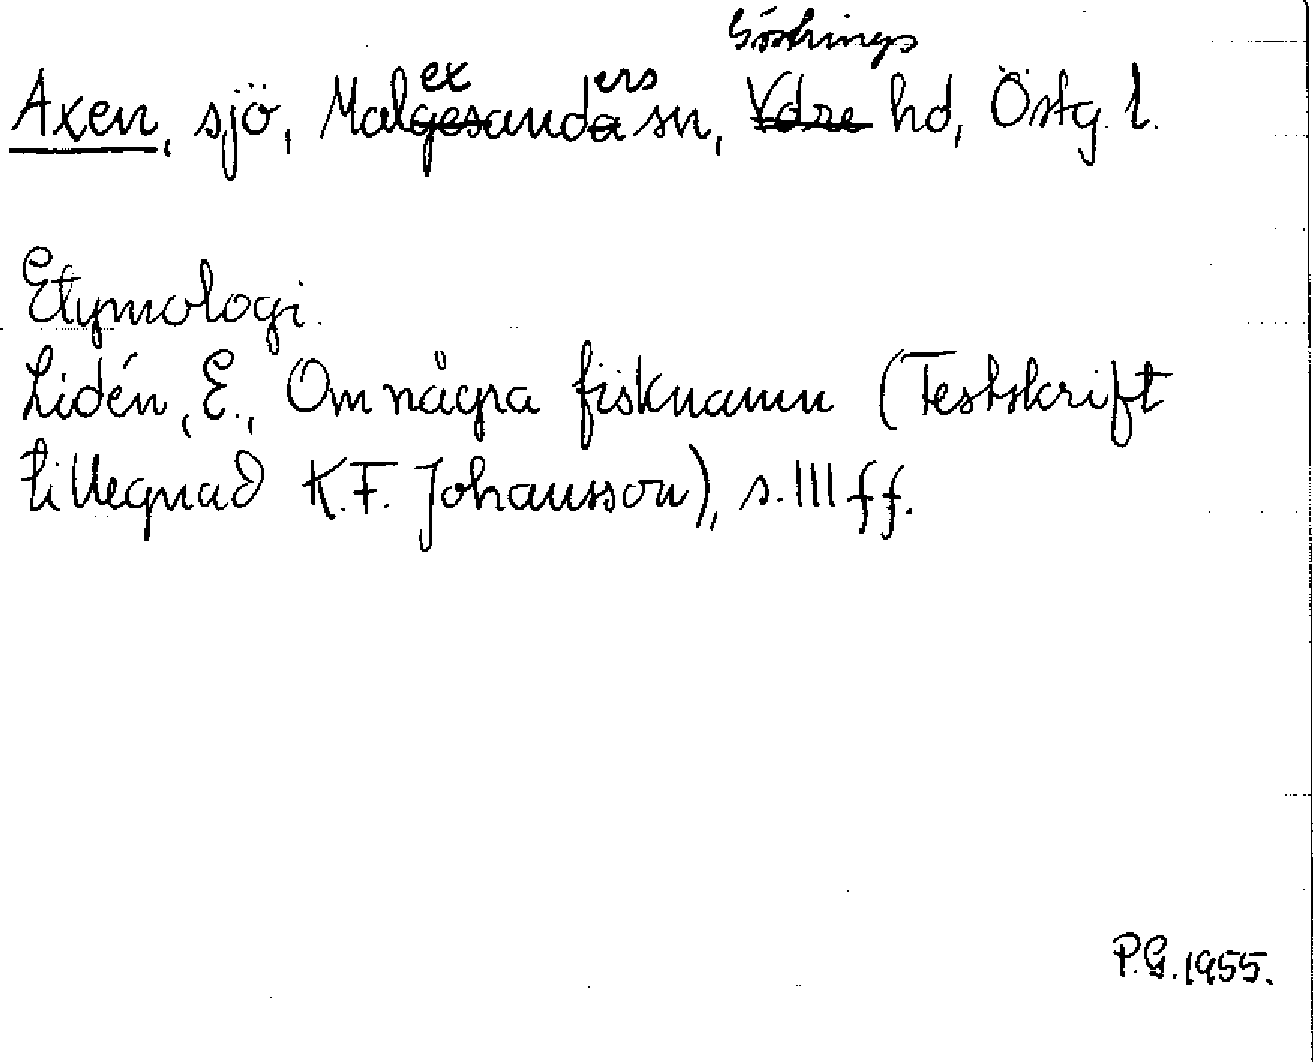 Göstrings
Axen, sjö, Malexanders sn, hd, Östg. l.
Etymologi.
Lidén, E., Om några fisknamn (Festskrift
tillegnad K.F. Johansson), s. 111 ff.
P.G. 1955.